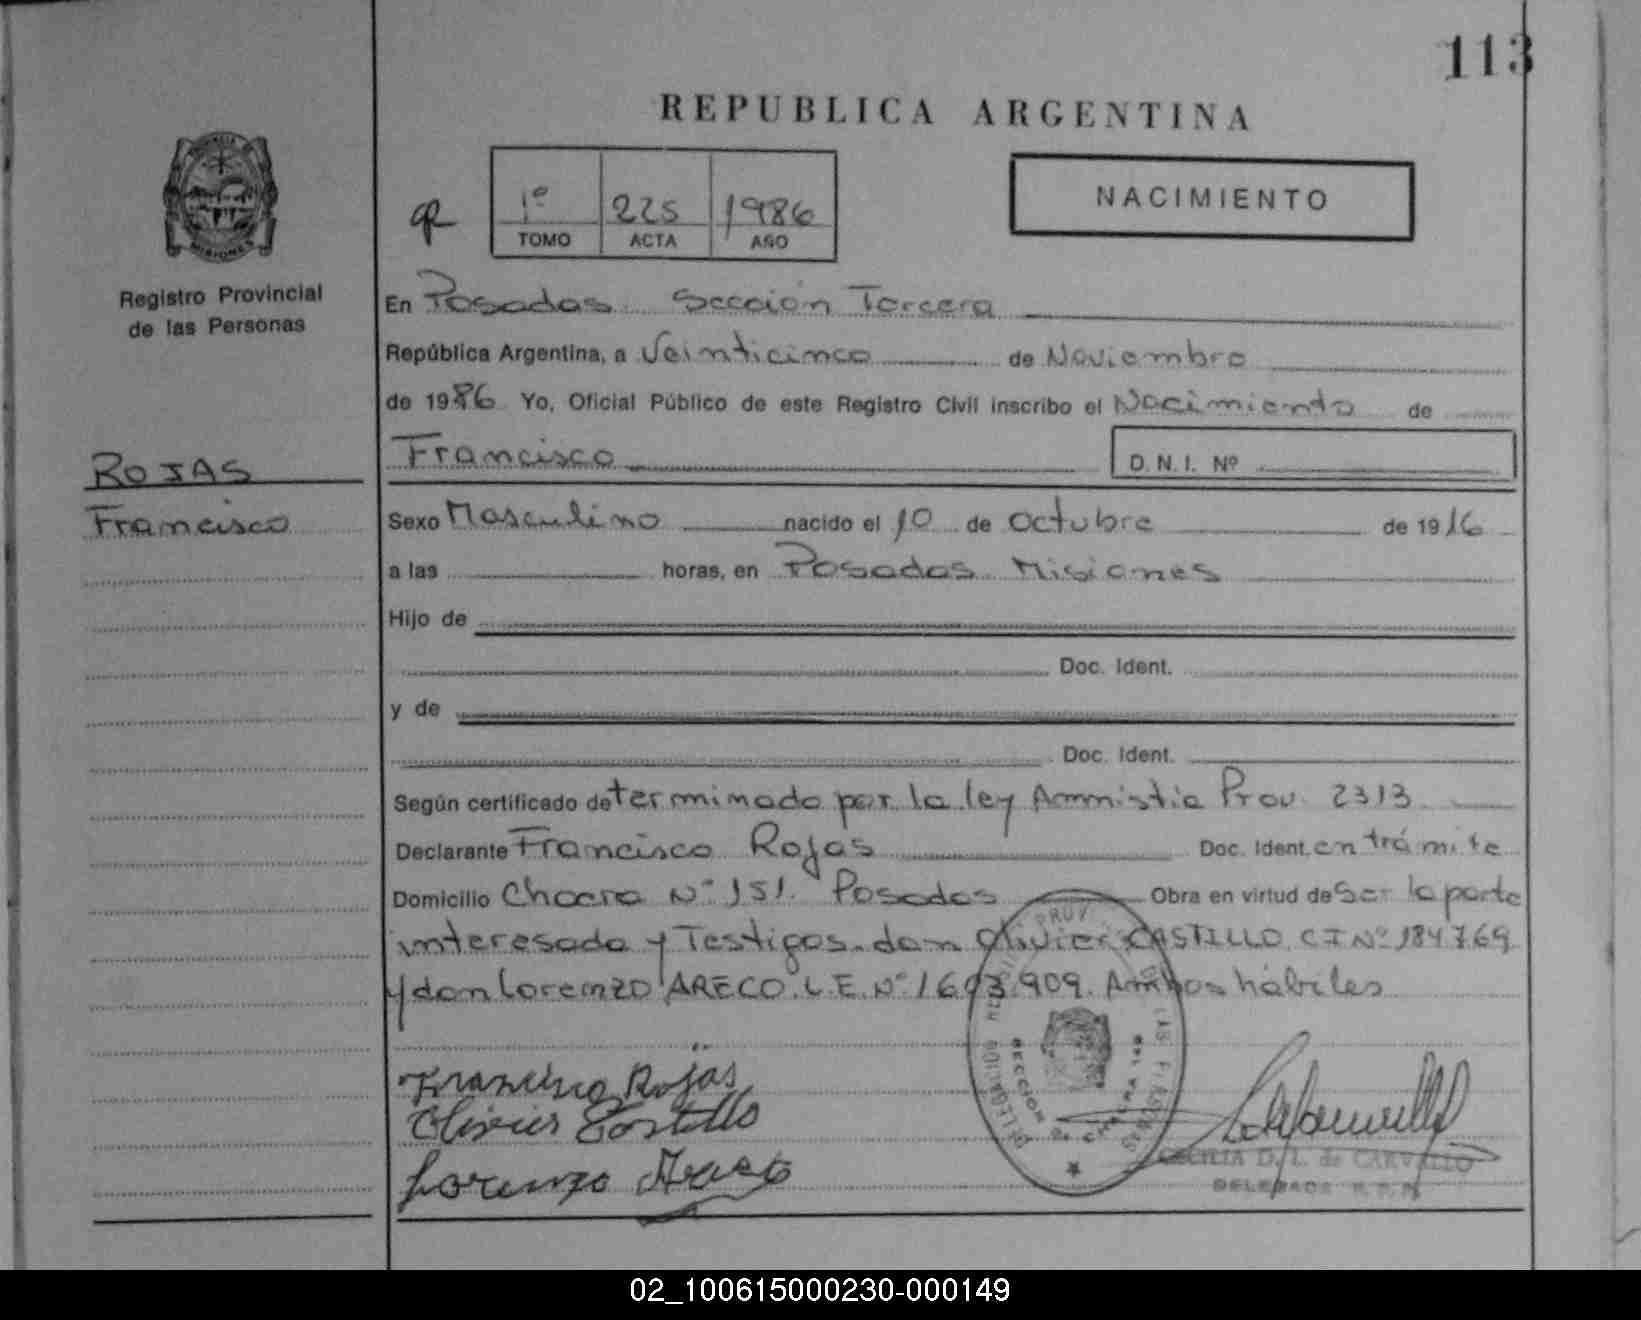 113
REPUBLICA ARGENTINA
1º 225 1986
TOMO ACTA AÑO
NACIMIENTO
PROVINCIA DE MISIONES
Registro Provincial
de las Personas
ROJAS
Francisco
En Posadas Sección Tercera
República Argentina, a Veinticinco de Noviembre
de 1986 Yo, Oficial Público de este Registro Civil inscribo el Nacimiento de
Francisco D. N. I. Nº
Sexo Masculino nacido el 10 de octubre de 1916
a las horas, en Posadas Misiones
Hijo de
Doc. Ident.
y de
Doc. Ident.
Según certificado determinado por la ley Amnistia Prov. 2313
Declarante Francisco Rojas Doc. Ident. en trámite
Domicilio Chacra Nº 151. Posadas Obra en virtud de Ser la parte
interesada y Testigos don Olivier CASTILLO C I Nº 184769
y don Lorenzo ARECO. L.E. Nº 1693.909. Ambos hábiles
Francisco Rojas
Olivier Castillo
Lorenzo Areco
SECCION
CECILIA D. L. de CARVALLO
DELEGADA R.P.P.
02_100615000230-000149